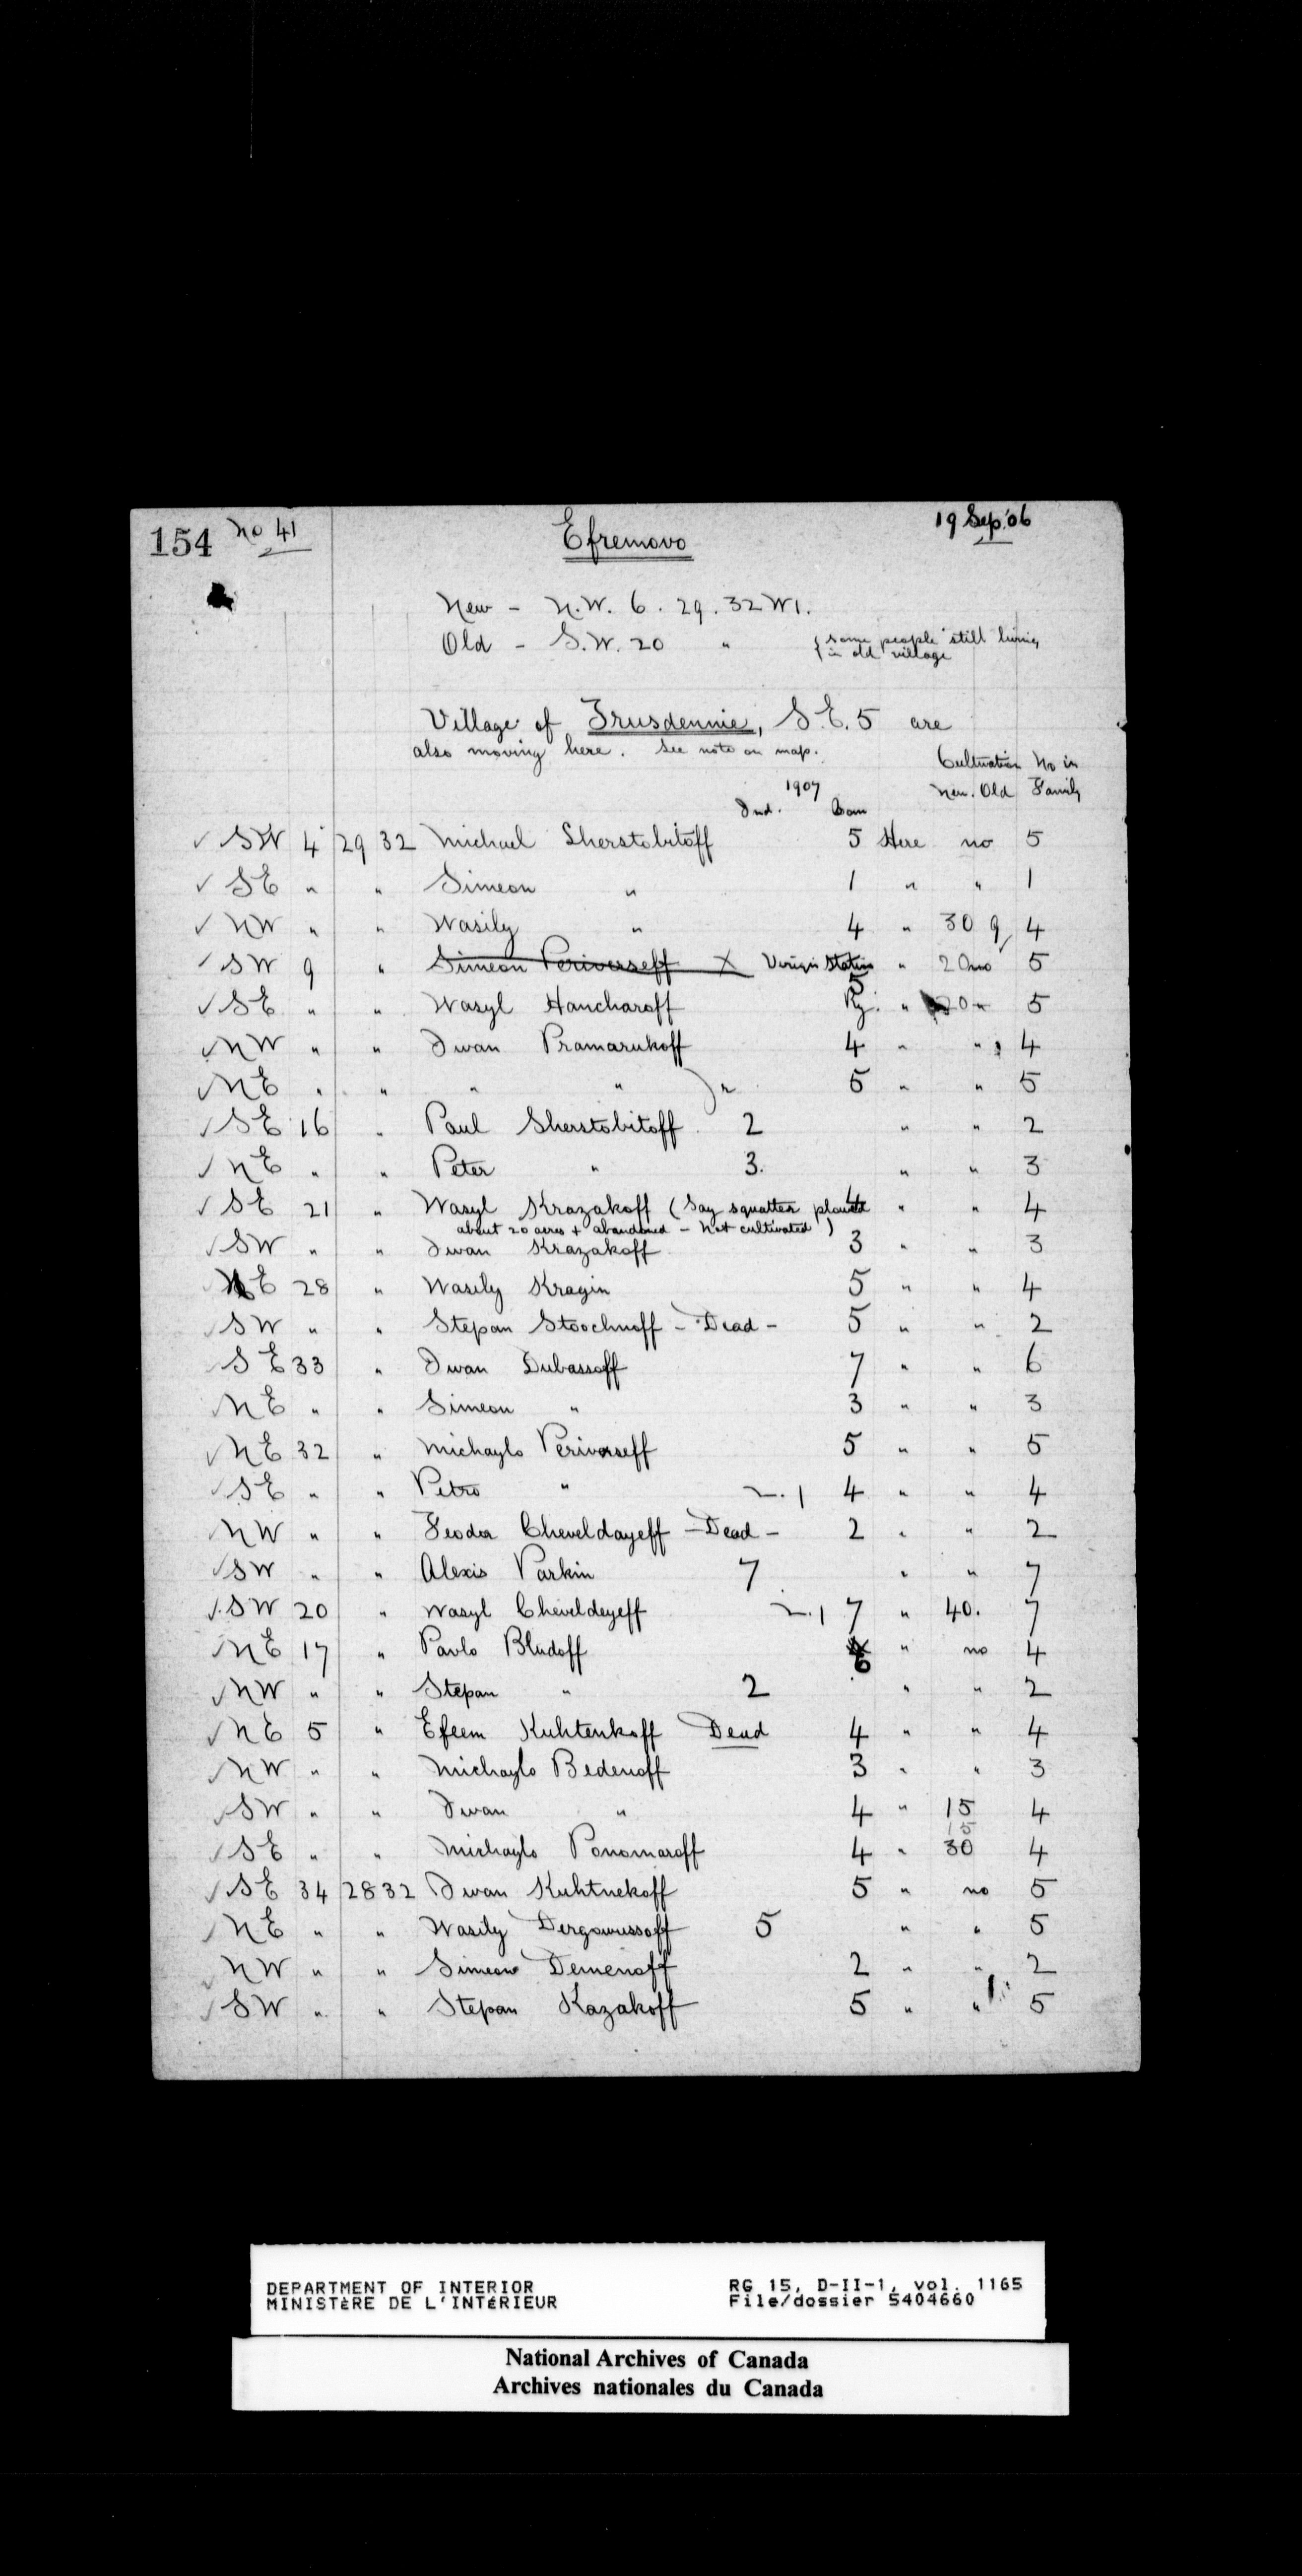 154 No 41 Efremovo 19 Sep. '06
New - N.W. 6. 29. 32 W1.
Old - S.W. 20 " { some people still living
in old village
Village of Trusdennie, S.E. 5 are
also moving here. See note on map.
Cultivation No in
1907 New. Old Family
Ind. Com
✓ SW 4 29 32 Michael Sherstobitoff 5 Here no 5
✓ SE " " Simeon " 1 " " 1
✓ NW " " Wasily " 4 " 30 9 4
✓ SW 9 " Simeon Periverseff X Verigin Station " 20 no 5
✓ SE " " Wasyl Hancharoff 5 Ry. " 20 " 5
✓ NW " " Iwan Pramarukoff 4 " " 4
✓ NE " " " " 5 " " 5
✓ SE 16 " Paul Sherstobitoff 2 " " 2
✓ NE " " Peter " 3. " " 3
✓ SE 21 " Wasyl Krazakoff (Say squatter plowed 4 " " 4
about 20 acres + abandoned - Not cultivated)
✓ SW " " Iwan Krazakoff 3 " " 3
✓ NE 28 " Wasily Kragin 5 " " 4
✓ SW " " Stepan Stoochnoff - Dead - 5 " " 2
✓ SE 33 " Iwan Dubassoff 7 " " 6
✓ NE " " Simeon " 3 " " 3
✓ NE 32 " Michaylo Periverseff 5 " " 5
✓ SE " " Petro " 1 4 " " 4
✓ NW " " Feodor Cheveldayeff - Dead - 2 " " 2
✓ SW " " Alexis Parkin 7 " " 7
✓ SW 20 " Wasyl Cheveldeyeff 1 7 " 40. 7
✓ NE 17 " Pavlo Bludoff 6 " no 4
✓ NW " " Stepan " 2 " " 2
✓ NE 5 " Efeem Kuhtenkoff Dead 4 " " 4
✓ NW " " Michaylo Bedenoff 3 " " 3
✓ SW " " Iwan " 4 " 15 4
15
✓ SE " " Michaylo Ponomaroff 4 " 30 4
✓ SE 34 28 32 Iwan Kuhtnekoff 5 " no 5
✓ NE " " Wasily Dergowussoff 5 " " 5
✓ NW " " Simeon Demenoff 2 " " 2
✓ SW " " Stepan Kazakoff 5 " " 5
DEPARTMENT OF INTERIOR RG 15, D-II-1, vol. 1165
MINISTÈRE DE L'INTÉRIEUR File/dossier 5404660
National Archives of Canada
Archives nationales du Canada